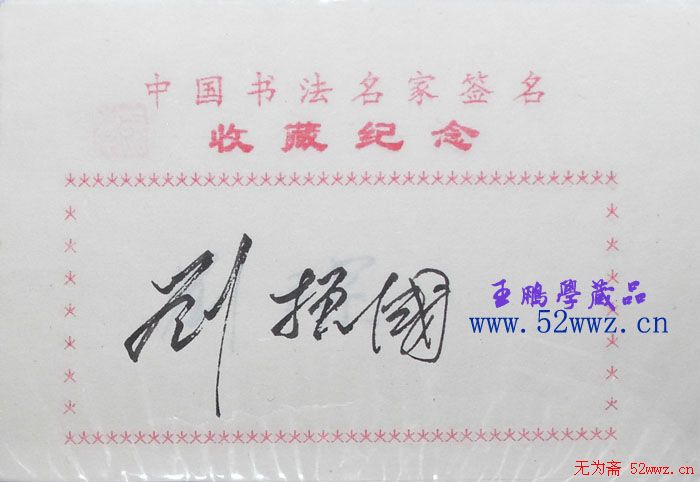 中国书法名家签名
收藏纪念
刘 國
王鹏學藏品
www.52wwz.cn
无为斋 52wwz.cn